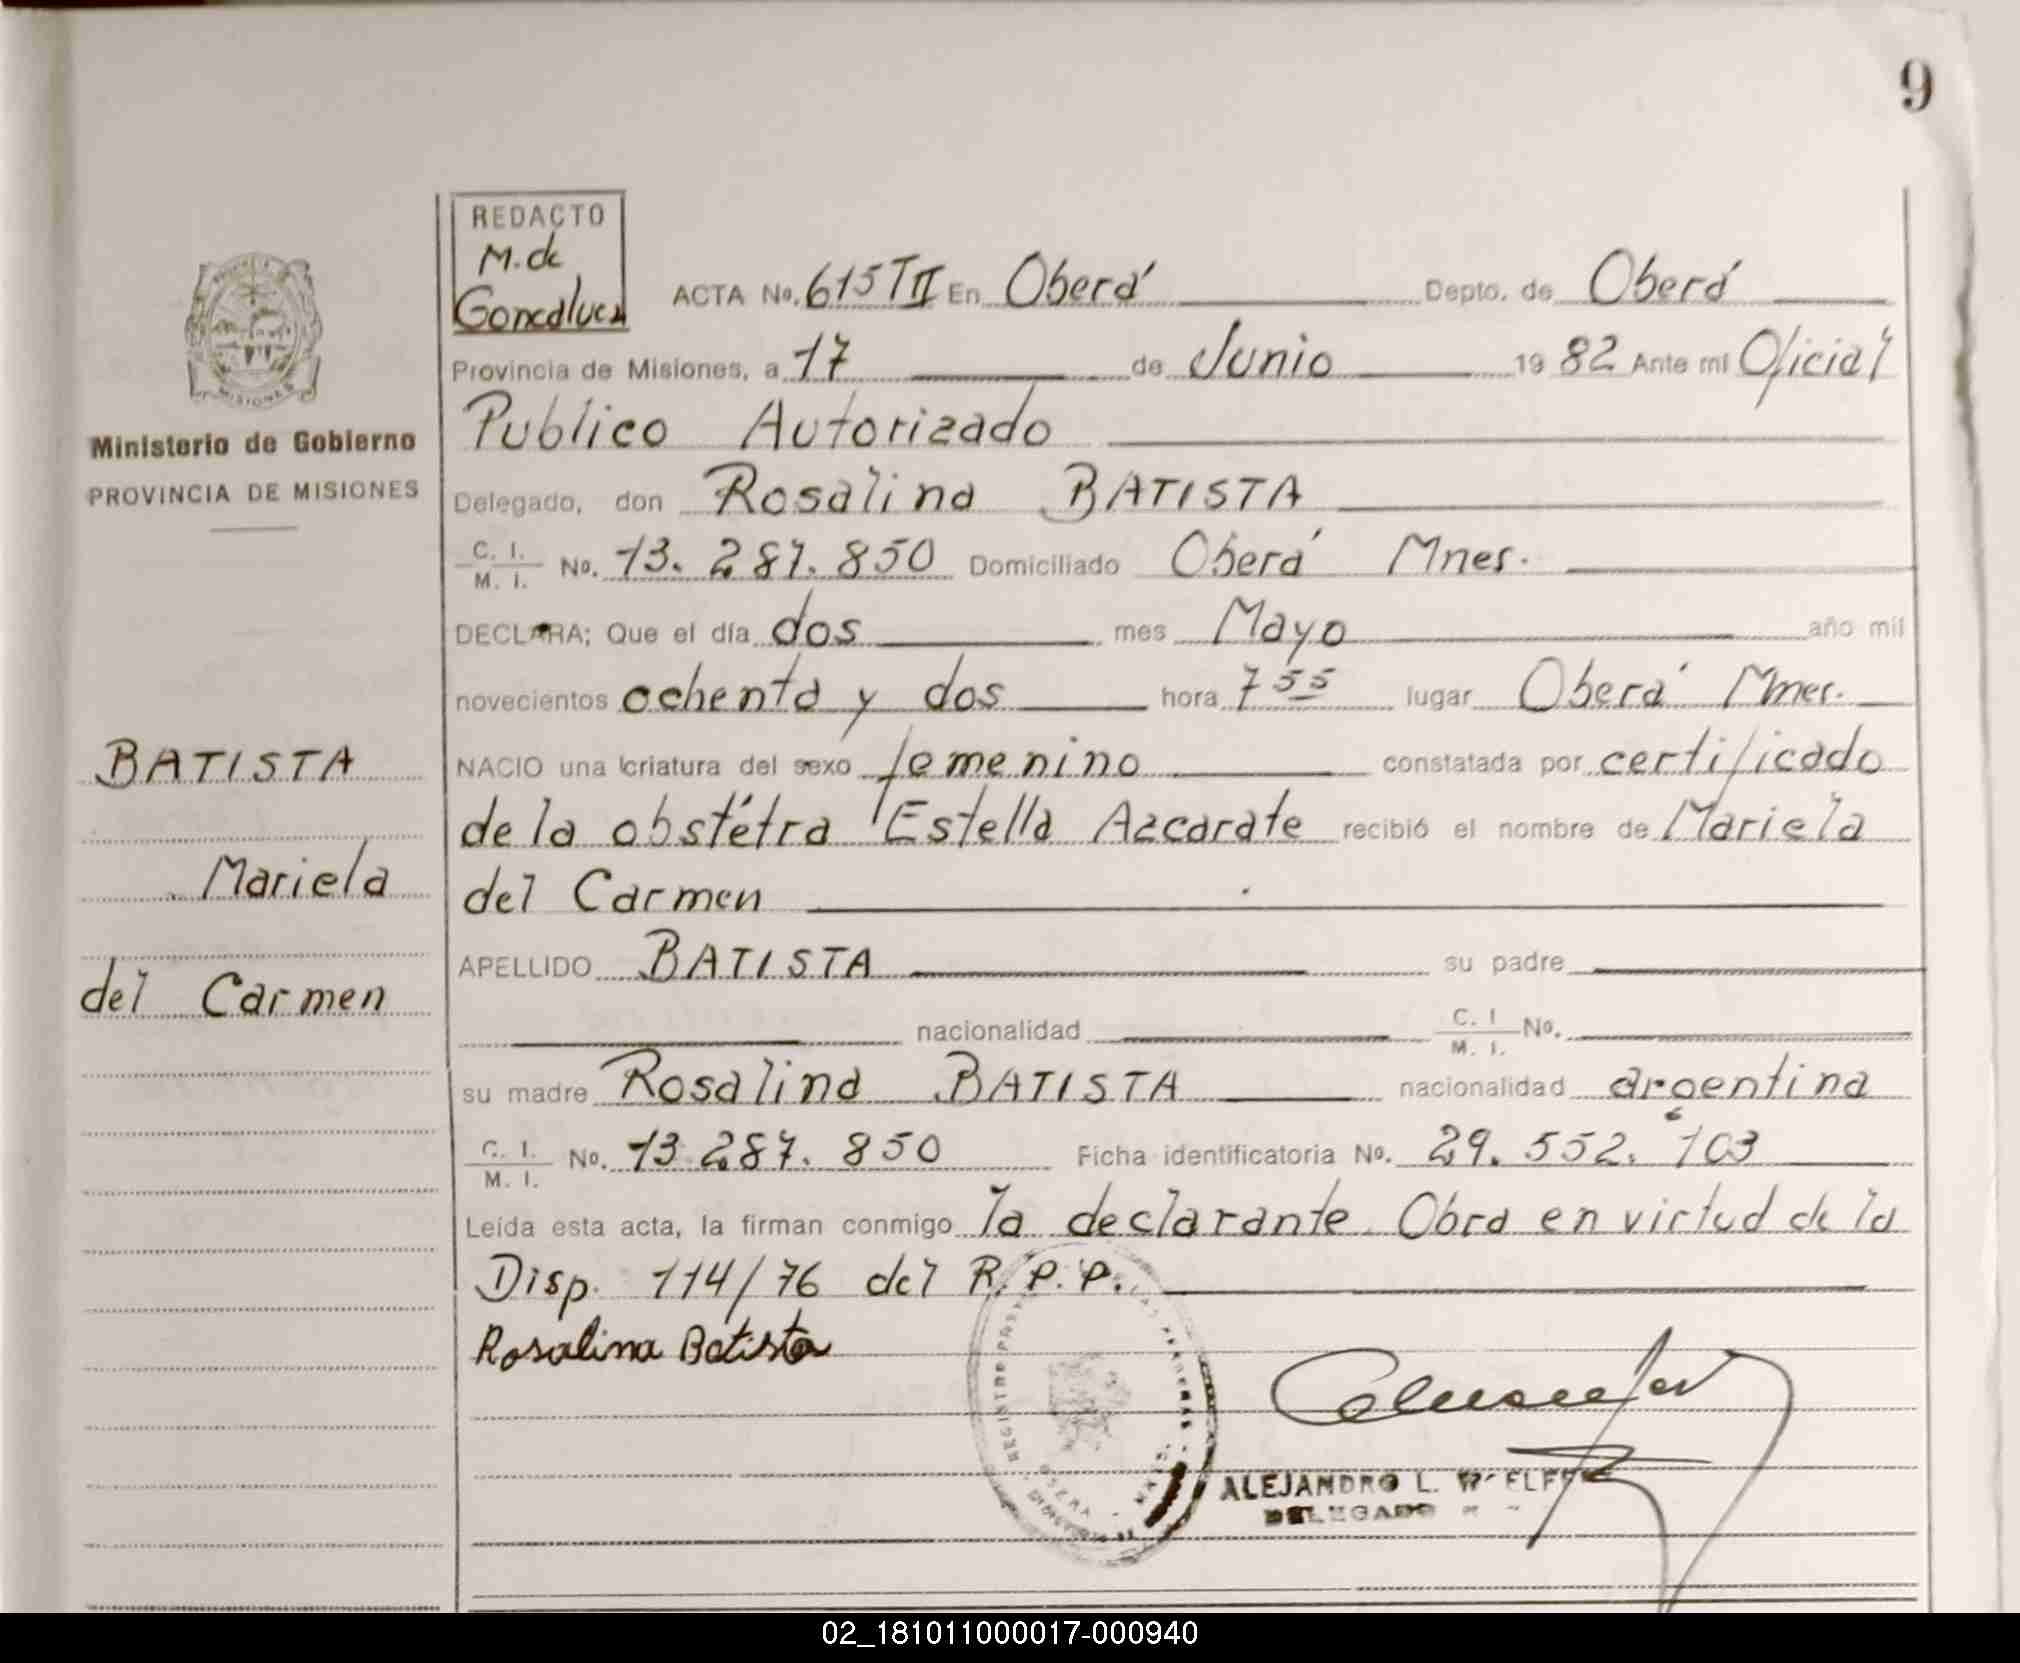 9
REDACTO
M. de
Goncalvez
ACTA No. 615 T II En Oberá Depto. de Oberá
Provincia de Misiones, a 17 de Junio 19 82 Ante mi Oficial
Publico Autorizado
Delegado, don Rosalina BATISTA
C. I. M. I. No. 13. 287. 850 Domiciliado Oberá Mnes.
DECLARA; Que el día dos mes Mayo año mil
novecientos ochenta y dos hora 7 55 lugar Oberá Mnes.
NACIO una criatura del sexo femenino constatada por certificado
de la obstétra Estella Azcarate recibió el nombre de Mariela
del Carmen
APELLIDO BATISTA su padre
nacionalidad C. I M. I. No.
su madre Rosalina BATISTA nacionalidad argentina
C. I. M. I. No. 13 287. 850 Ficha identificatoria No. 29. 552. 103
Leída esta acta, la firman conmigo la declarante Obra en virtud de la
Disp. 114/76 del R. P. P.
Rosalina Batista
ALEJANDRO L.
DELEGADO
MISIONES
Ministerio de Gobierno
PROVINCIA DE MISIONES
BATISTA
Mariela
del Carmen
02_181011000017-000940